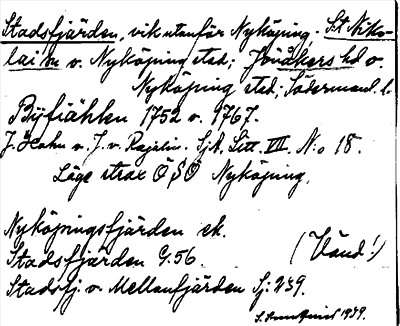 Stadsfjärden, vik utanför Nyköping. S:t Niko-
lai sn o. Nyköping stad; Jönåkers hd o.
Nyköping stad; Södermanl. l.
Byfiählen 1752 o. 1767.
J. Hahn o. J. v. Rajalin. Sj.A. Litt. VII. N:o 18.
Läge strax ÖSÖ Nyköping.
Nyköpingsfjärden ek.
(Vänd!)
Stadsfjärden G:56.
Stadsfj. o. Mellanfjärden Sj: 239.
1939.